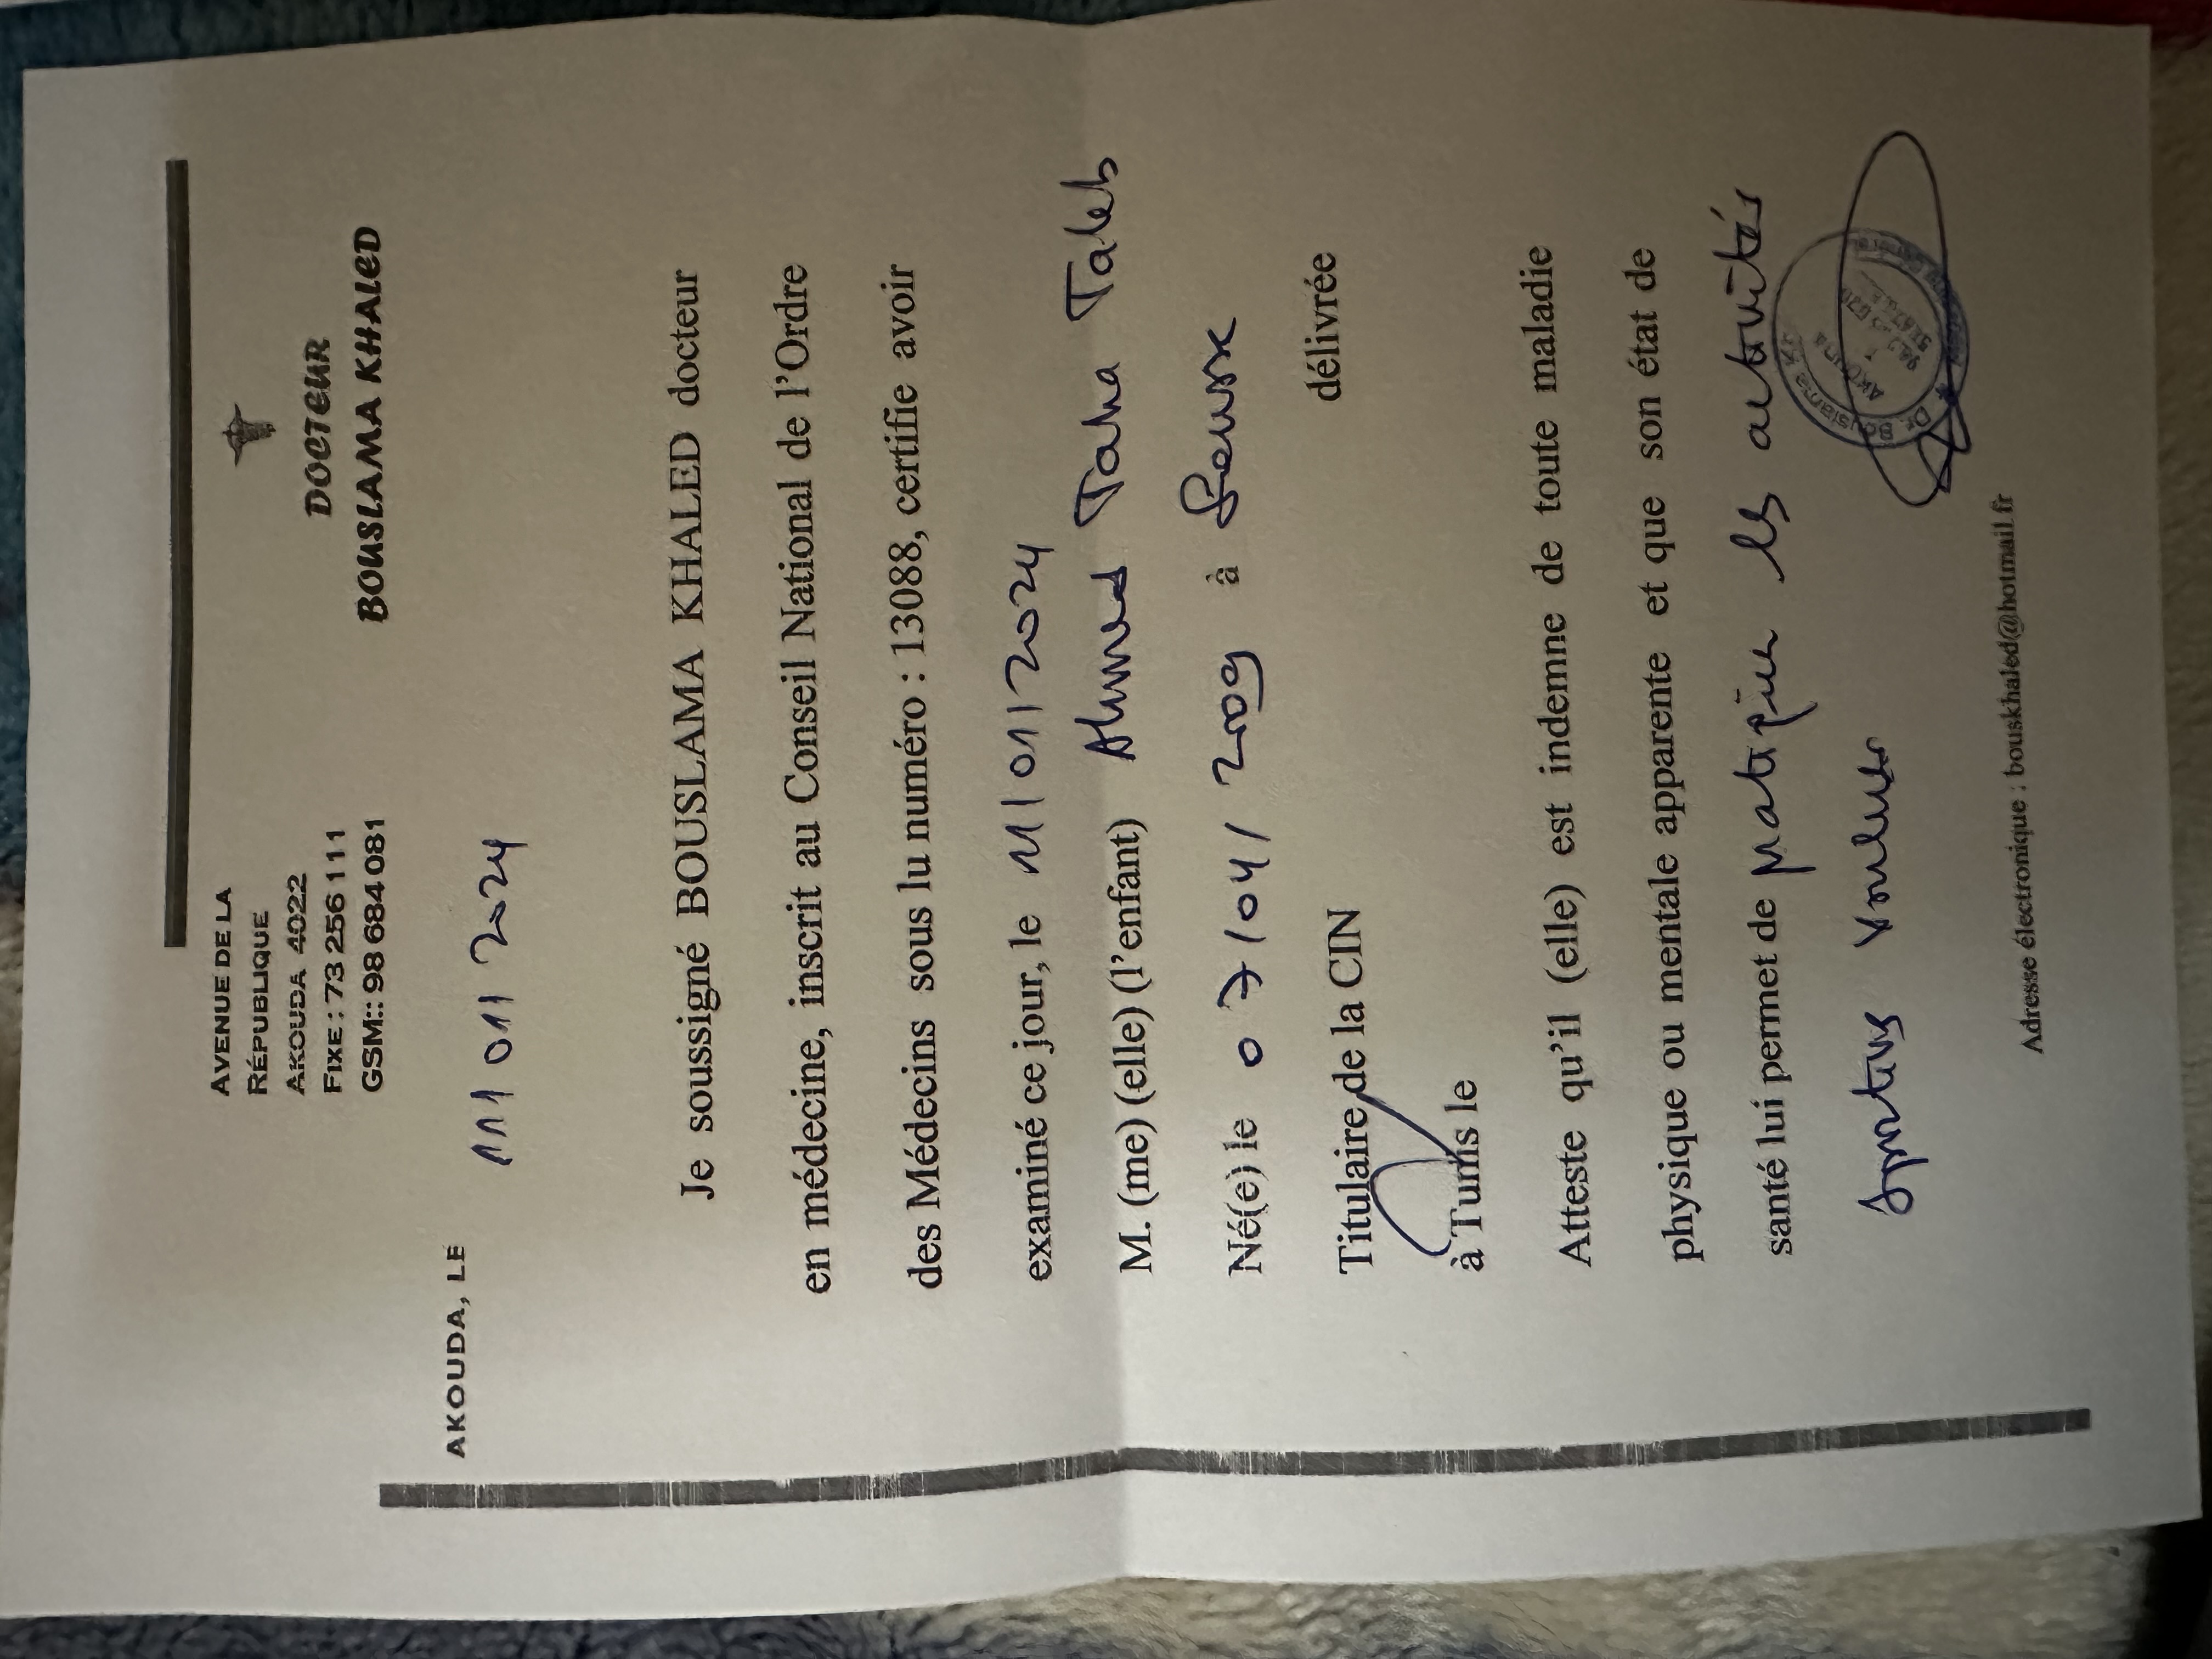 AVENUE DE LA
RÉPUBLIQUE
AKOUDA 4022
FIXE : 73 256 111
GSM:: 98 684 081
DOCTEUR
BOUSLAMA KHALED
AKOUDA, LE 11/01/2024
Je soussigné BOUSLAMA KHALED docteur
en médecine, inscrit au Conseil National de l'Ordre
des Médecins sous lu numéro : 13088, certifie avoir
examiné ce jour, le 11/01/2024
M. (me) (elle) (l'enfant) Ahmed Taha Taleb
Né(e) le 07/04/2009 à Sousse
Titulaire de la CIN délivrée
à Tunis le
Atteste qu'il (elle) est indemne de toute maladie
physique ou mentale apparente et que son état de
santé lui permet de pratiquer les activités
sportives
Dr. Bouslama
AKOUDA
Adresse électronique : bouskhaled@hotmail.fr